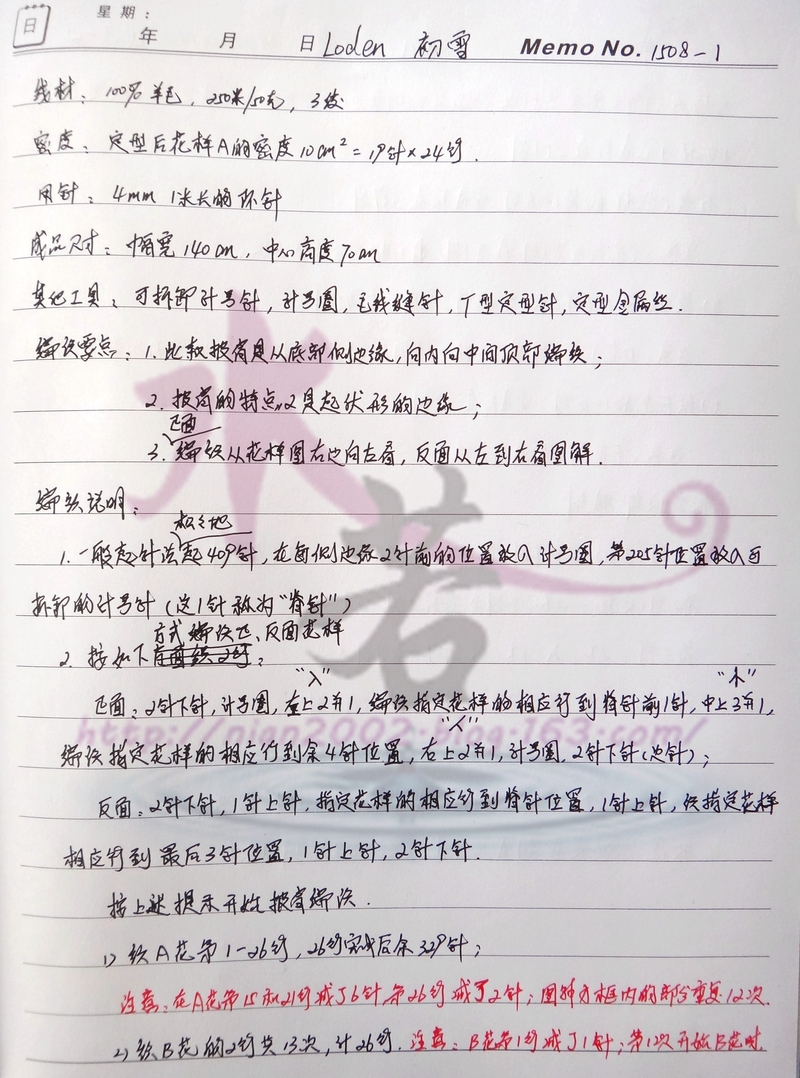 日 星期：
年 月 日 Loden 初雪 Memo No. 1508-1
线材：100%羊毛，250米/50克，3绞
密度：定型后花样A的密度10cm²=19针×24行.
用针：4mm 1米长的环针
成品尺寸：幅宽140cm，中心高度70cm
其他工具：可拆卸计号针，计号圈，毛线缝针，T型定型针，定型金属丝.
编织要点：1.此款披肩是从底部侧边缘，向内向中间顶部编织；
2.披肩的特点是起伏形的边缘；
正面
3.编织从花样图右边向左看，反面从左到右看图解.
编织说明：
松松地
1.一般起针法起409针，在每侧边缘2针前的位置放入计号圈，第205针位置放入可
拆卸的计号针（这1针称为"脊针"）
方式编织正、反面花样
2.按如下：
"入" "木"
正面：2针下针，计号圈，左上2并1，编织指定花样的相应行到脊针前1针，中上3并1，
"人"
编织指定花样的相应行到余4针位置，右上2并1，计号圈，2针下针（边针）；
反面：2针下针，1针上针，指定花样的相应行到脊针位置，1针上针，织指定花样
相应行到最后3针位置，1针上针，2针下针.
按上述提示开始披肩编织.
1）织A花第1-26行，26行完成后余329针；
注意：在A花第15和21行减了6针，第26行减了2针；图解方框内的部分重复12次.
2）织B花的2行共13次，计26行.注意：B花第1行减了1针；第12次开始B花时，
水若
http://nian2002.blog.163.com/